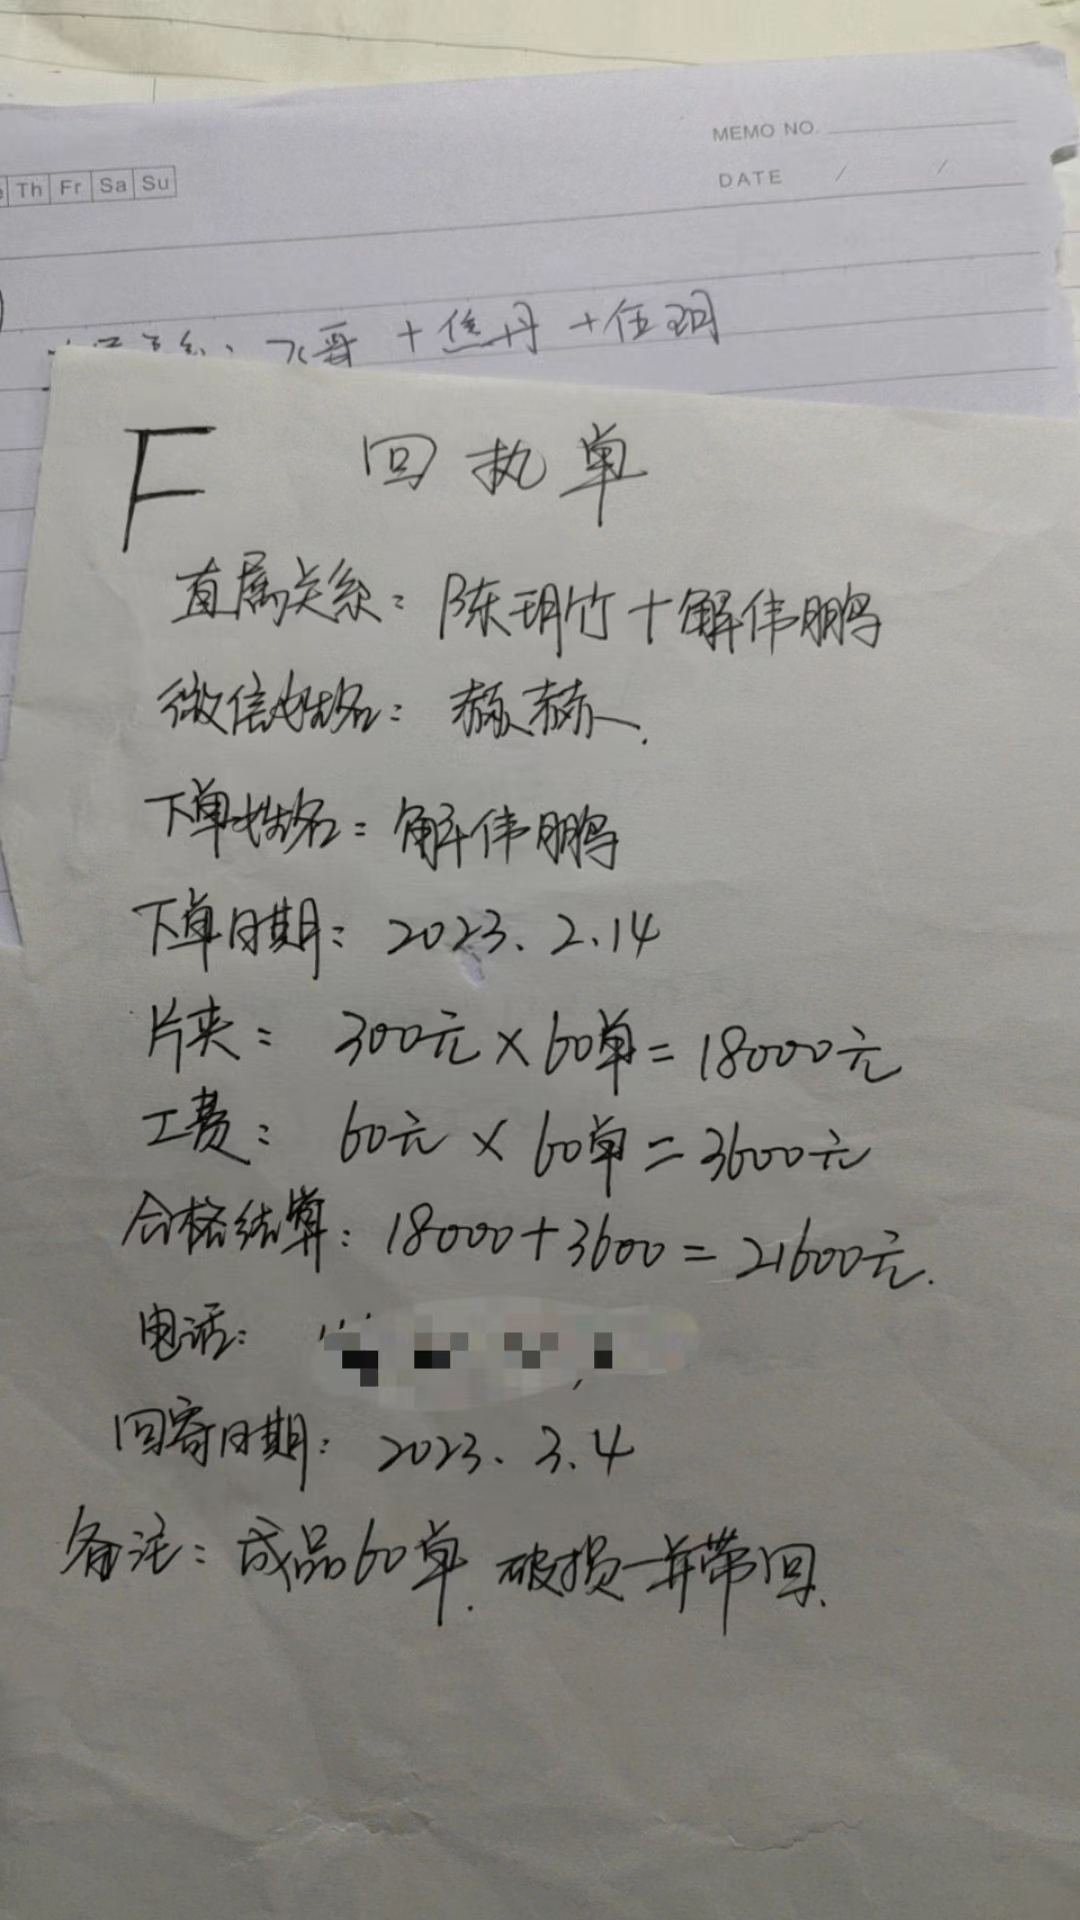 MEMO NO.
Th Fr Sa Su
DATE / /
哥 + 焦丹 + 伍玥
F 回执单
直属关系：陈玥竹+解伟鹏
微信姓名：赫赫.
下单姓名：解伟鹏
下单日期：2023.2.14
片夹：300元×60单=18000元
工费：60元×60单=3600元
合格结算：18000+3600=21600元.
电话：
回寄日期：2023.3.4
备注：成品60单.破损一并带回.